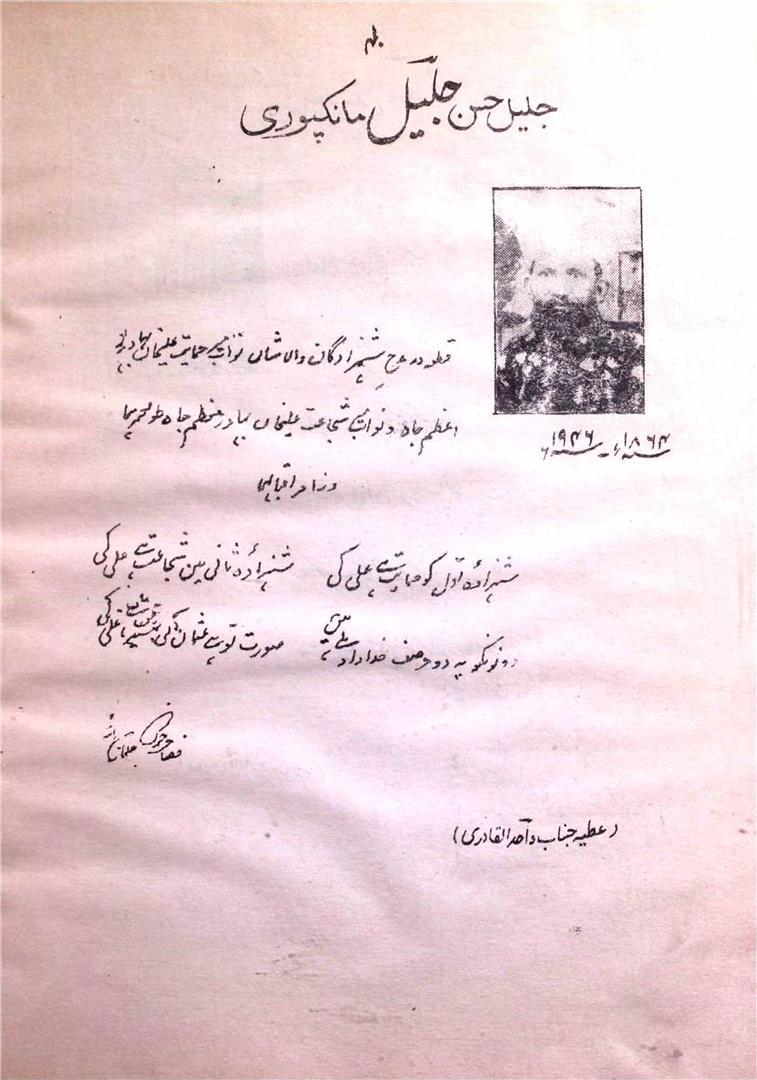 جلیل حسن جلیلؔ مانکپوری
۱۸۶۴ء - ۱۹۴۶ء
قطعہ در مدحِ شہزادگان والا شان نواب میر حمایت علیخاں بہادر
اعظم جاہ و نواب میر شجاعت علیخاں بہادر معظم جاہ طولعمرہما
وزاد اقبالہما
شہزادۂ اوّل کو حمایت ہے علی کی
شہزادۂ ثانی میں شجاعت ہے علی کی
دونونکو یہ دو وصف خداداد ملے ہیں
صورت تو ہے عثماں کی سیرت ہے علی کی
فصاحت جنگ جلیل
(عطیہ جناب واحد القادری)